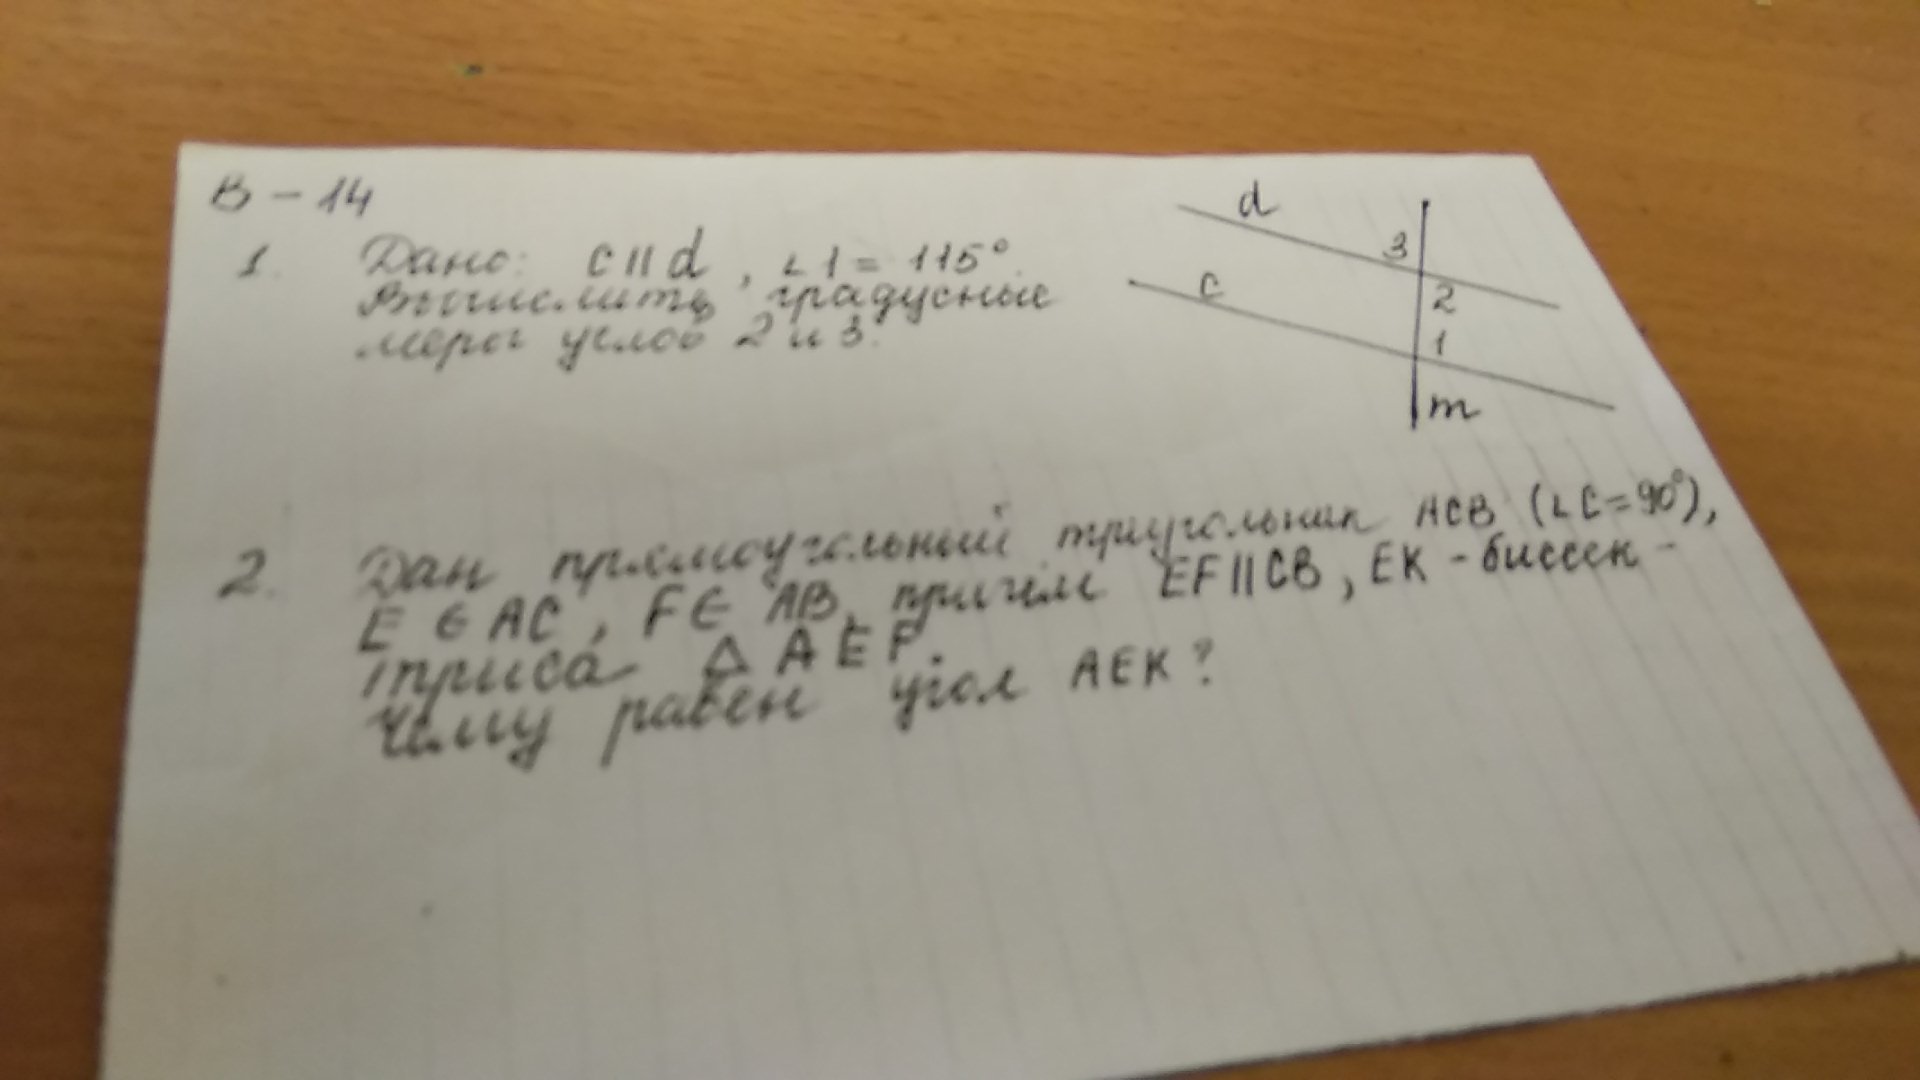 В - 14
1. Дано: c || d, ∠1 = 115°.
Вычислить градусные
меры углов 2 и 3.
d
3
c
2
1
m
2. Дан прямоугольный треугольник АСВ (∠C = 90°),
E ∈ AC, F ∈ AB, причём EF || CB, EK - биссек-
триса △ AEF.
Чему равен угол AEK?